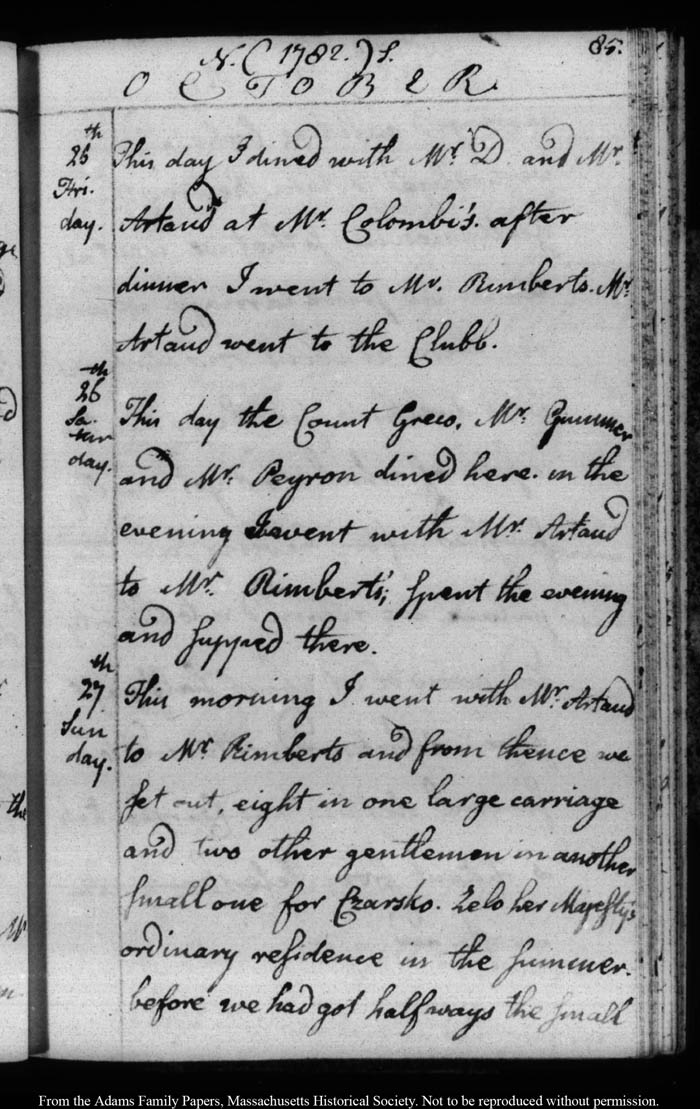 N. (1782.) S.
85.
OCTOBER.
25th
Fri-
day.
This day I dined with Mr. D. and Mr.
Artaud at Mr. Colombi's. after
dinner I went to Mr. Rimberts. Mr.
Artaud went to the Clubb.
26th
Sa-
tur
day.
This day the Count Greco, Mr.
and Mr. Peyron dined here. in the
evening I went with Mr. Artaud
to Mr. Rimberts; spent the evening
and supped there.
27th
Sun
day.
This morning I went with Mr. Artaud
to Mr. Rimberts and from thence we
set out, eight in one large carriage
and two other gentlemen in another
small one for Czarsko. Zelo her Majesty's
ordinary residence in the summer.
before we had got halfways the small
From the Adams Family Papers, Massachusetts Historical Society. Not to be reproduced without permission.